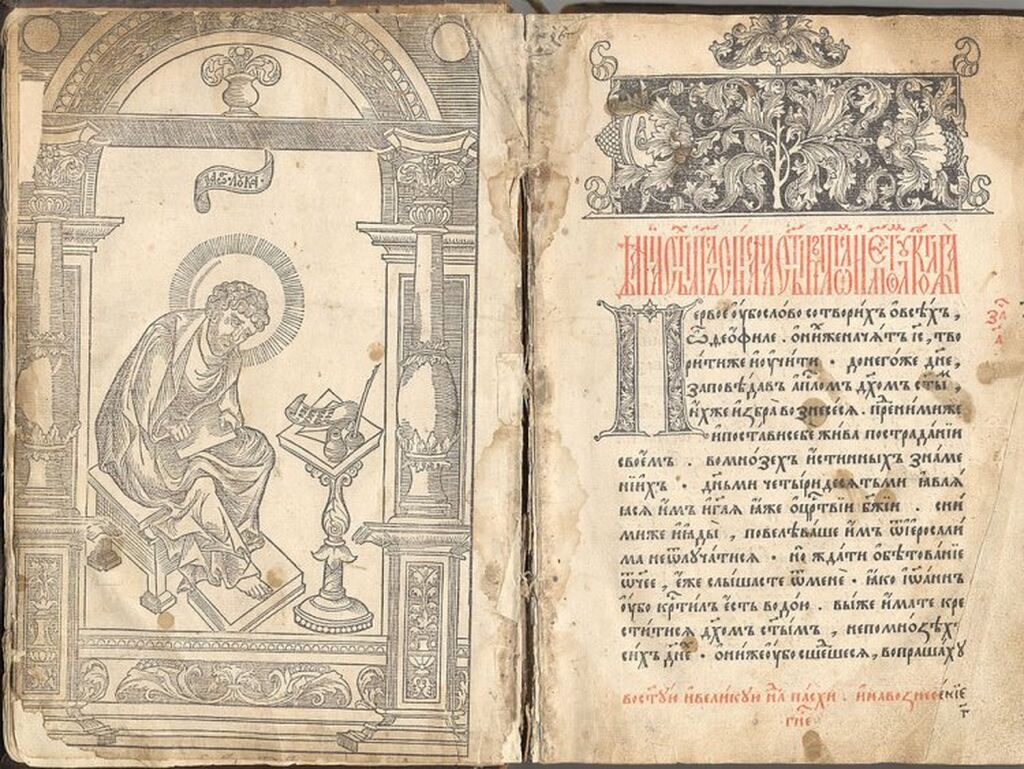 лꙋка
Первоє ѹбо слово сотворихъ о всѣхъ,
ѽ Ѳеѡфиле. о нихже начатъ іс҃, тво
рити же и ѹчити. до негоже дн҃е,
заповѣдавъ ап҃лом дх҃омъ ст҃ым,
ихже избра вознесеся. пред нимиже
и постави себе жива по страданіи
своемъ. во мнозѣхъ истинныхъ знаме
ніихъ. дн҃ьми четыридесятьми ꙗвлѧ
ꙗсѧ имъ и гл҃ѧ ꙗже о цр҃твіи бж҃іи. с ни
миже и ꙗды, повелѣваше имъ ѿ іеросали
ма не ѿлучатися. но ждати обѣтованіе
ѿч҃ее, еже слышасте ѿ мене. ꙗко іѡаннъ
ѹбо кр҃тилъ есть водою. вы же имате кре
ститися дх҃омъ ст҃ымъ, не по мнозѣхъ
сихъ дн҃е. они же ѹбо сшешеся, вопрашахꙋ
за҃ч
а҃
в ост҃ꙋю и великꙋю нл҃ю пасхи. и на вознесеніе
гн҃е